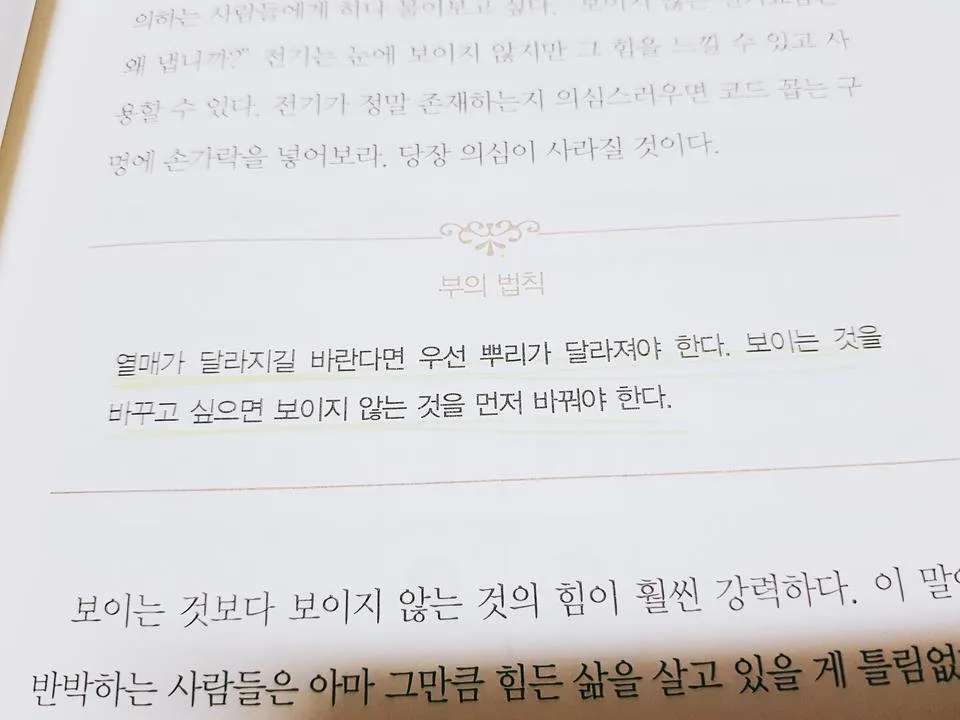 의하는 사람들에게 하나 물어보고 싶다. "보이지 않는 전기요금은
왜 냅니까?" 전기는 눈에 보이지 않지만 그 힘을 느낄 수 있고 사
용할 수 있다. 전기가 정말 존재하는지 의심스러우면 코드 꼽는 구
멍에 손가락을 넣어보라. 당장 의심이 사라질 것이다.
부의 법칙
열매가 달라지길 바란다면 우선 뿌리가 달라져야 한다. 보이는 것을
바꾸고 싶으면 보이지 않는 것을 먼저 바꿔야 한다.
보이는 것보다 보이지 않는 것의 힘이 훨씬 강력하다. 이 말에
반박하는 사람들은 아마 그만큼 힘든 삶을 살고 있을 게 틀림없